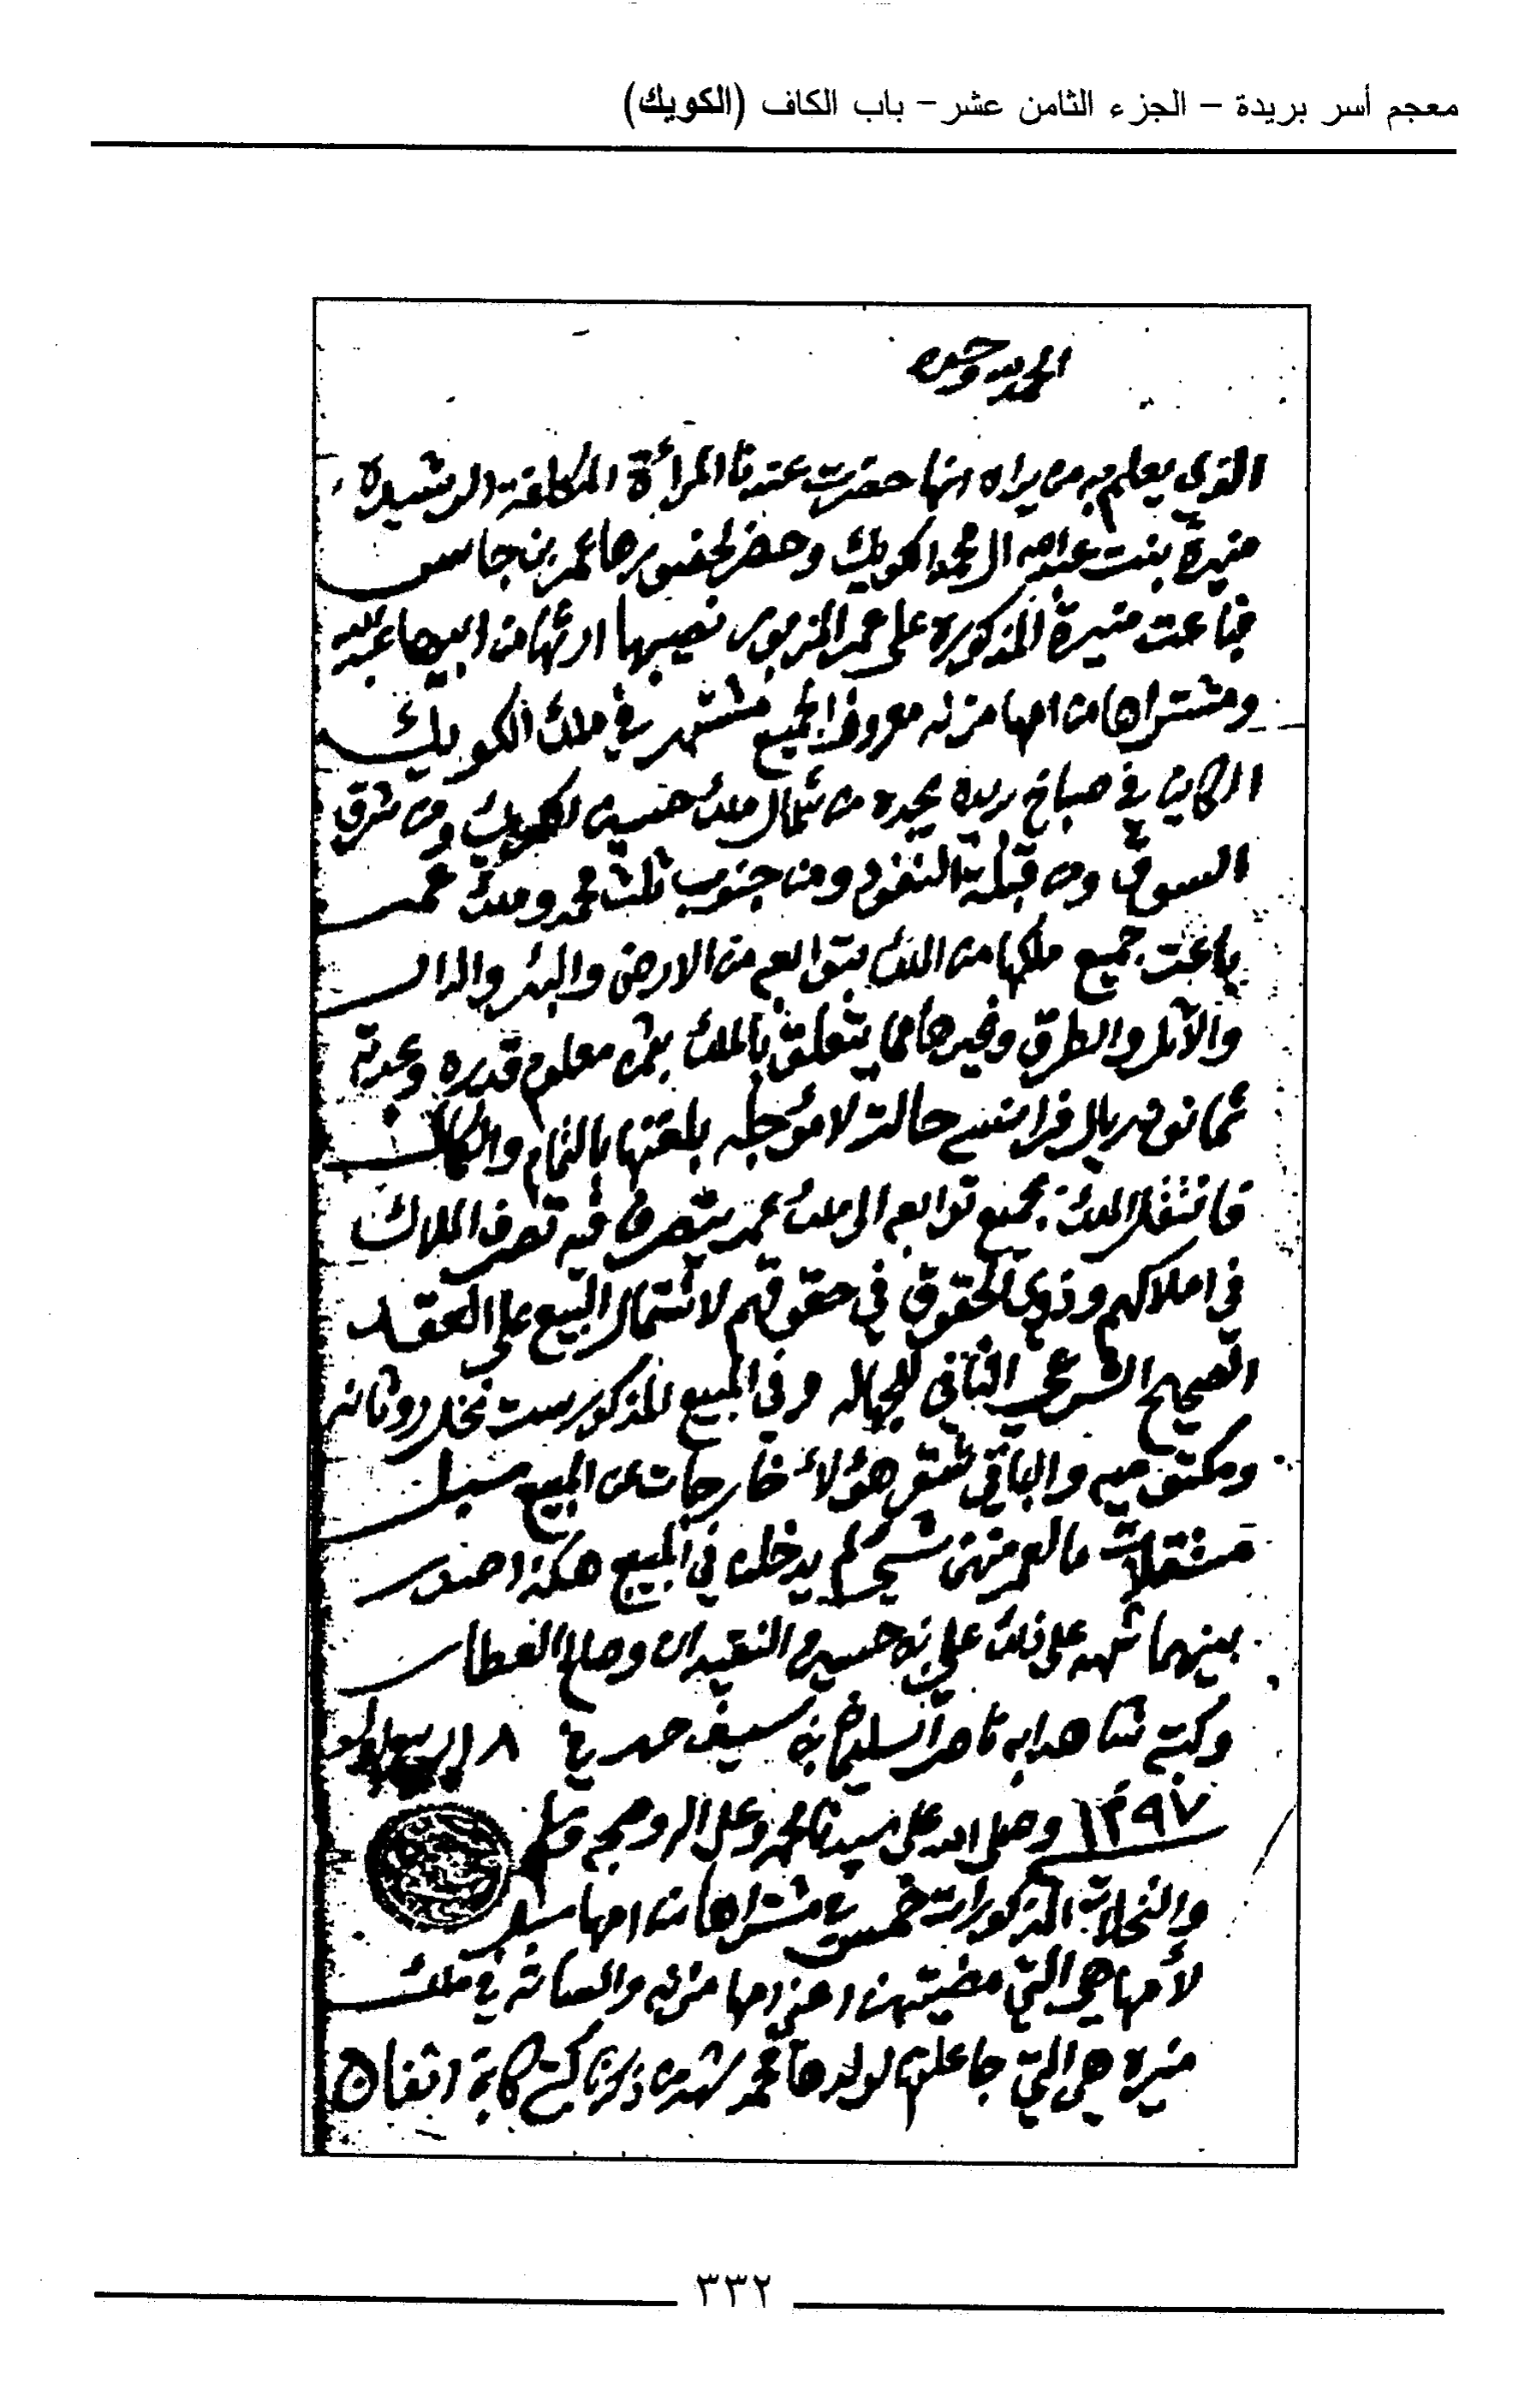 معجم أسر بريدة – الجزء الثامن عشر – باب الكاف (الكويك)
الحمد لله وحده
الذي يعلم به من يراه انها حضرت عندنا المرأة المكلفة الرشيده
منيرة بنت عبدالله ال محمد الكويك وحضر لحضورها عمر بن جاسر
فباعت منيرة المذكوره على عمر المزبور نصيبها ارثها من ابيها عبدالله
ومشتراها من امها مزنه معروف الجميع مشتهر في ملك الكويك
الكاين في صباخ بريده يحده من شمال ملك حسين الكويك ومن شرق
السوق ومن قبلة النفود ومن جنوب ثلث محمد وملك عمر
باعت جميع ملكها من الملك بتوابعه من الارض والبئر والدار
والأثل والطرق وغيرها مما يتعلق بالملك بثمن معلوم قدره وعدته
ثمانون ريال فرانسه حالة لا مؤجله بلغتها بالتمام والكمال
فانتقل الملك بجميع توابعه الى ملك عمر يتصرف فيه تصرف الملاك
في املاكهم وذوي الحقوق في حقوقهم لاشتمال البيع على العقد
الصحيح الشرعي النافي للجهاله وفي المبيع المذكور ست نخل روثانه
ومكتوميه والباقي شقر هؤلاء خارجات عن المبيع سبل
مستقلات ما لعمر منهن شي لم يدخلن في المبيع هكذا صدر
بينهما شهد على ذلك علي بن حسين النقيدان وصالح العطار
وكتبه شاهدا به ناصر السليمان بن سيف حرر في ٨ ربيع
١٢٩٧ وصلى الله على سيدنا محمد وعلى اله وصحبه وسلم
والنخلات المذكورات خمس في مشتراها من امها سبل
لأمها هي التي امها مزنه والسادسة في ملك
منيره هي التي جاعلتها لولدها محمد شهد من ذكرنا كتبه كاتبه
٣٣٢